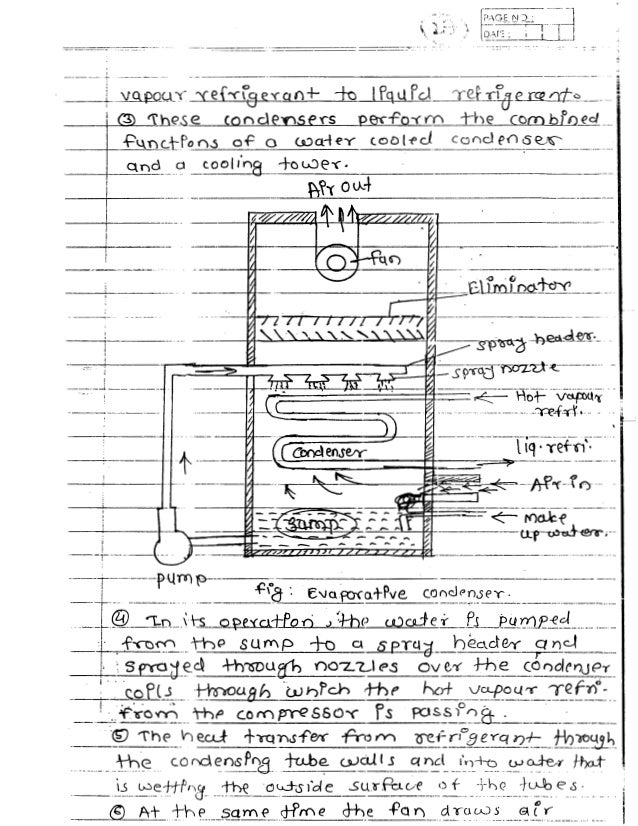 PAGE NO.:
DATE:
vapour refrigerant to liquid refrigerant.
③ These condensers perform the combined
functions of a water cooled condenser
and a cooling tower.
Air out
fan
Eliminator
spray header.
spray nozzle
Hot vapour
refri.
Condenser
liq. refri.
Air in
Sump
make
up water.
pump
fig : Evaporative condenser.
④ In its operation, the water is pumped
from the sump to a spray header and
sprayed through nozzles over the condenser
coils through which the hot vapour refri-
from the compressor is passing.
⑤ The heat transfer from refrigerant through
the condensing tube walls and into water that
is wetting the outside surface of the tubes.
⑥ At the same time the fan draws air